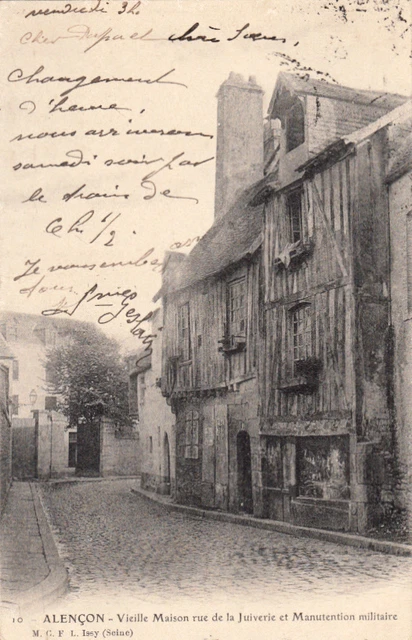 vendredi 3h
Cher Dupael chère Soeur,
Changement
d'heure,
nous arriverons
samedi soir par
le train de
6h 1/2.
Je vous embrasse
tous
10 ALENÇON - Vieille Maison rue de la Juiverie et Manutention militaire
M. G. F. L. Issy (Seine)